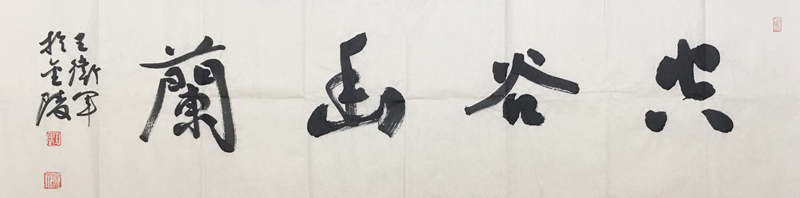 空谷幽蘭
王衛軍
於金陵